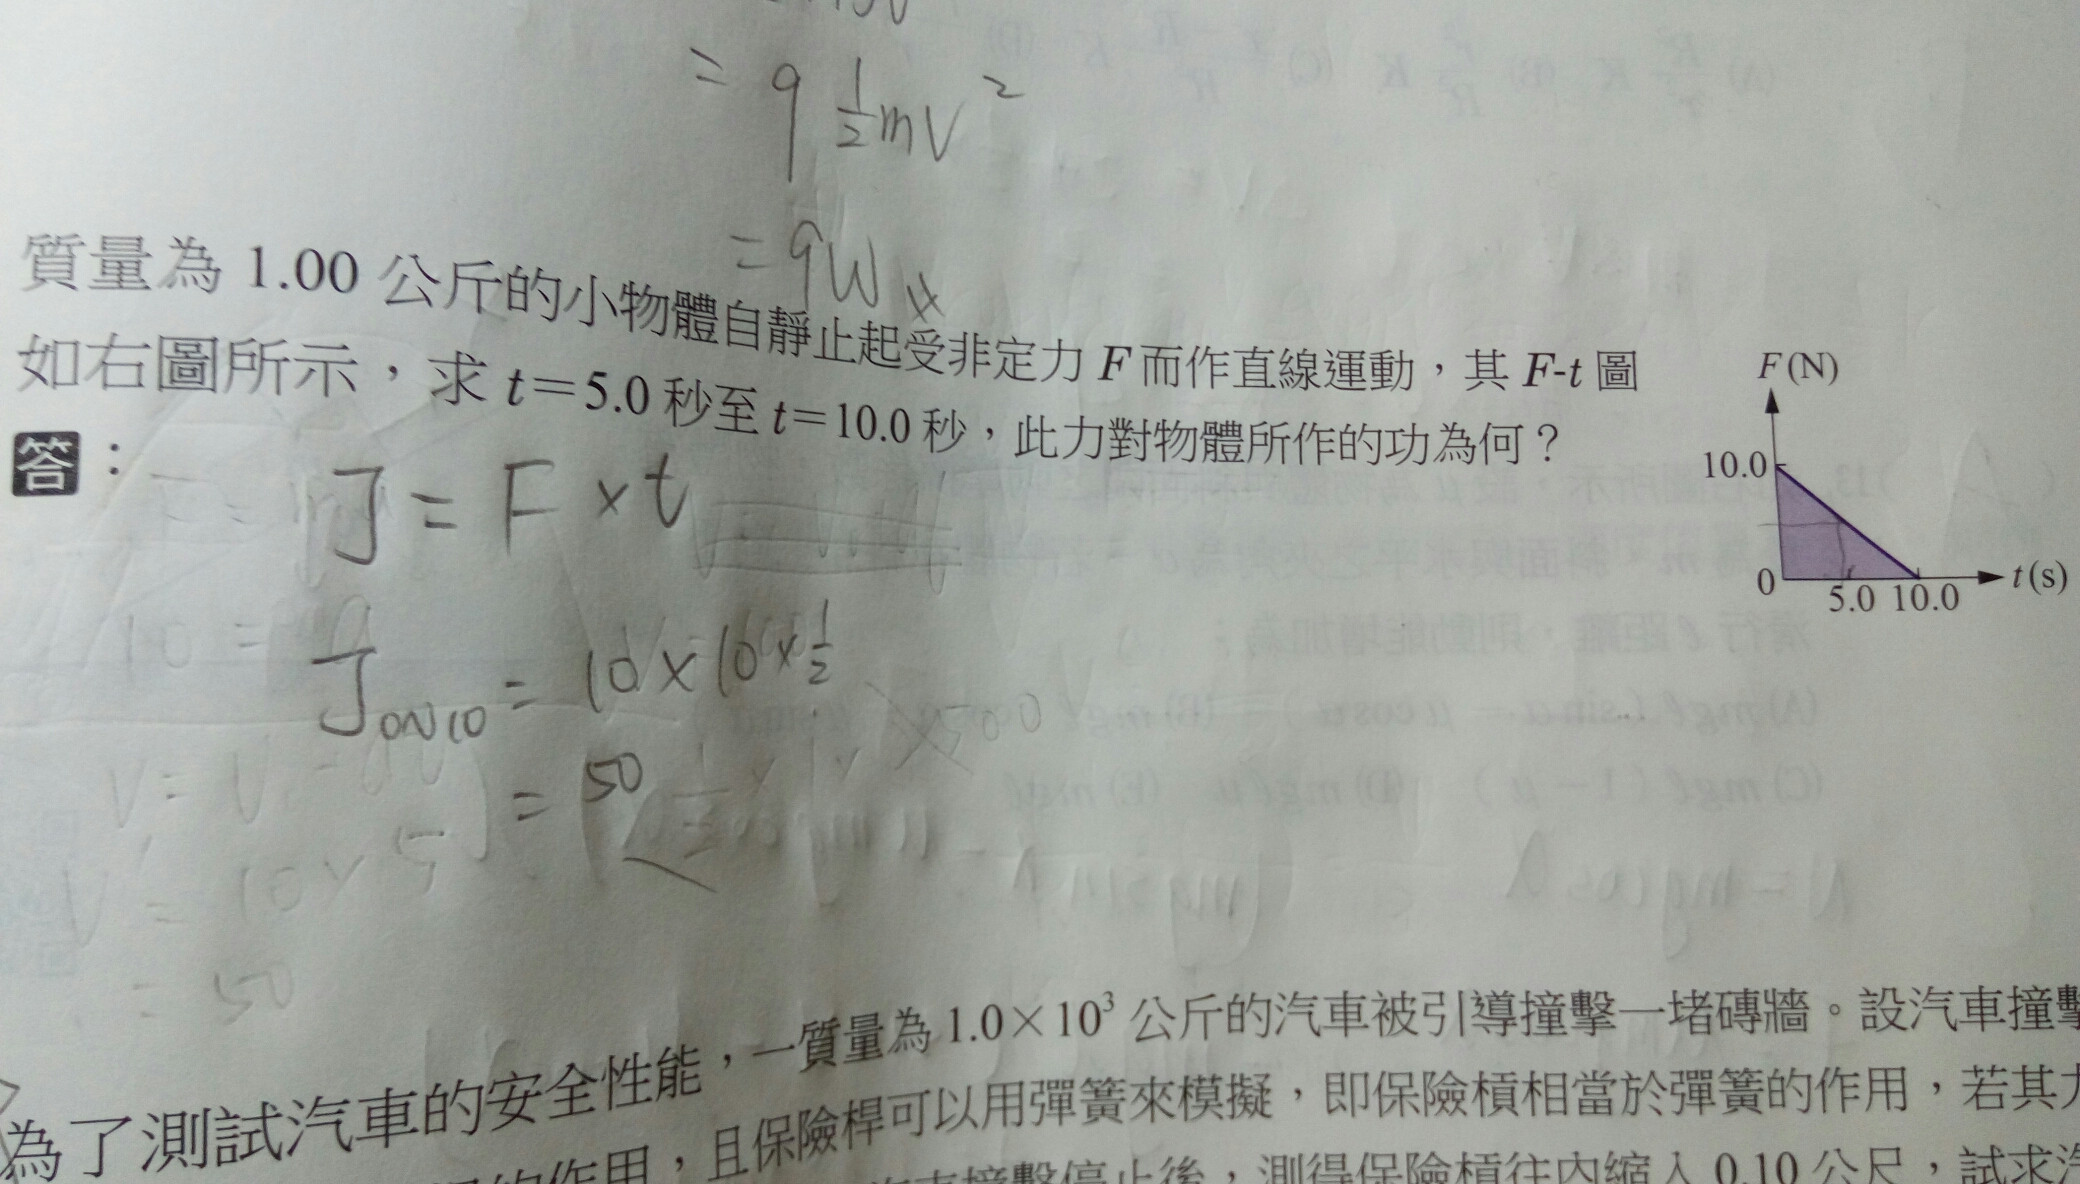 = 9 ½mV²
= 9W
質量為 1.00 公斤的小物體自靜止起受非定力 F 而作直線運動，其 F-t 圖
如右圖所示，求 t＝5.0 秒至 t＝10.0 秒，此力對物體所作的功為何？
F(N)
10.0
0
5.0 10.0
t(s)
答：
J = F × t
J₀~₁₀ = 10 × 10 × ½
= 50
為了測試汽車的安全性能，一質量為 1.0×10³ 公斤的汽車被引導撞擊一堵磚牆。設汽車撞擊
的作用，且保險桿可以用彈簧來模擬，即保險槓相當於彈簧的作用，若其
汽車撞擊停止後，測得保險槓往內縮入 0.10 公尺，試求汽